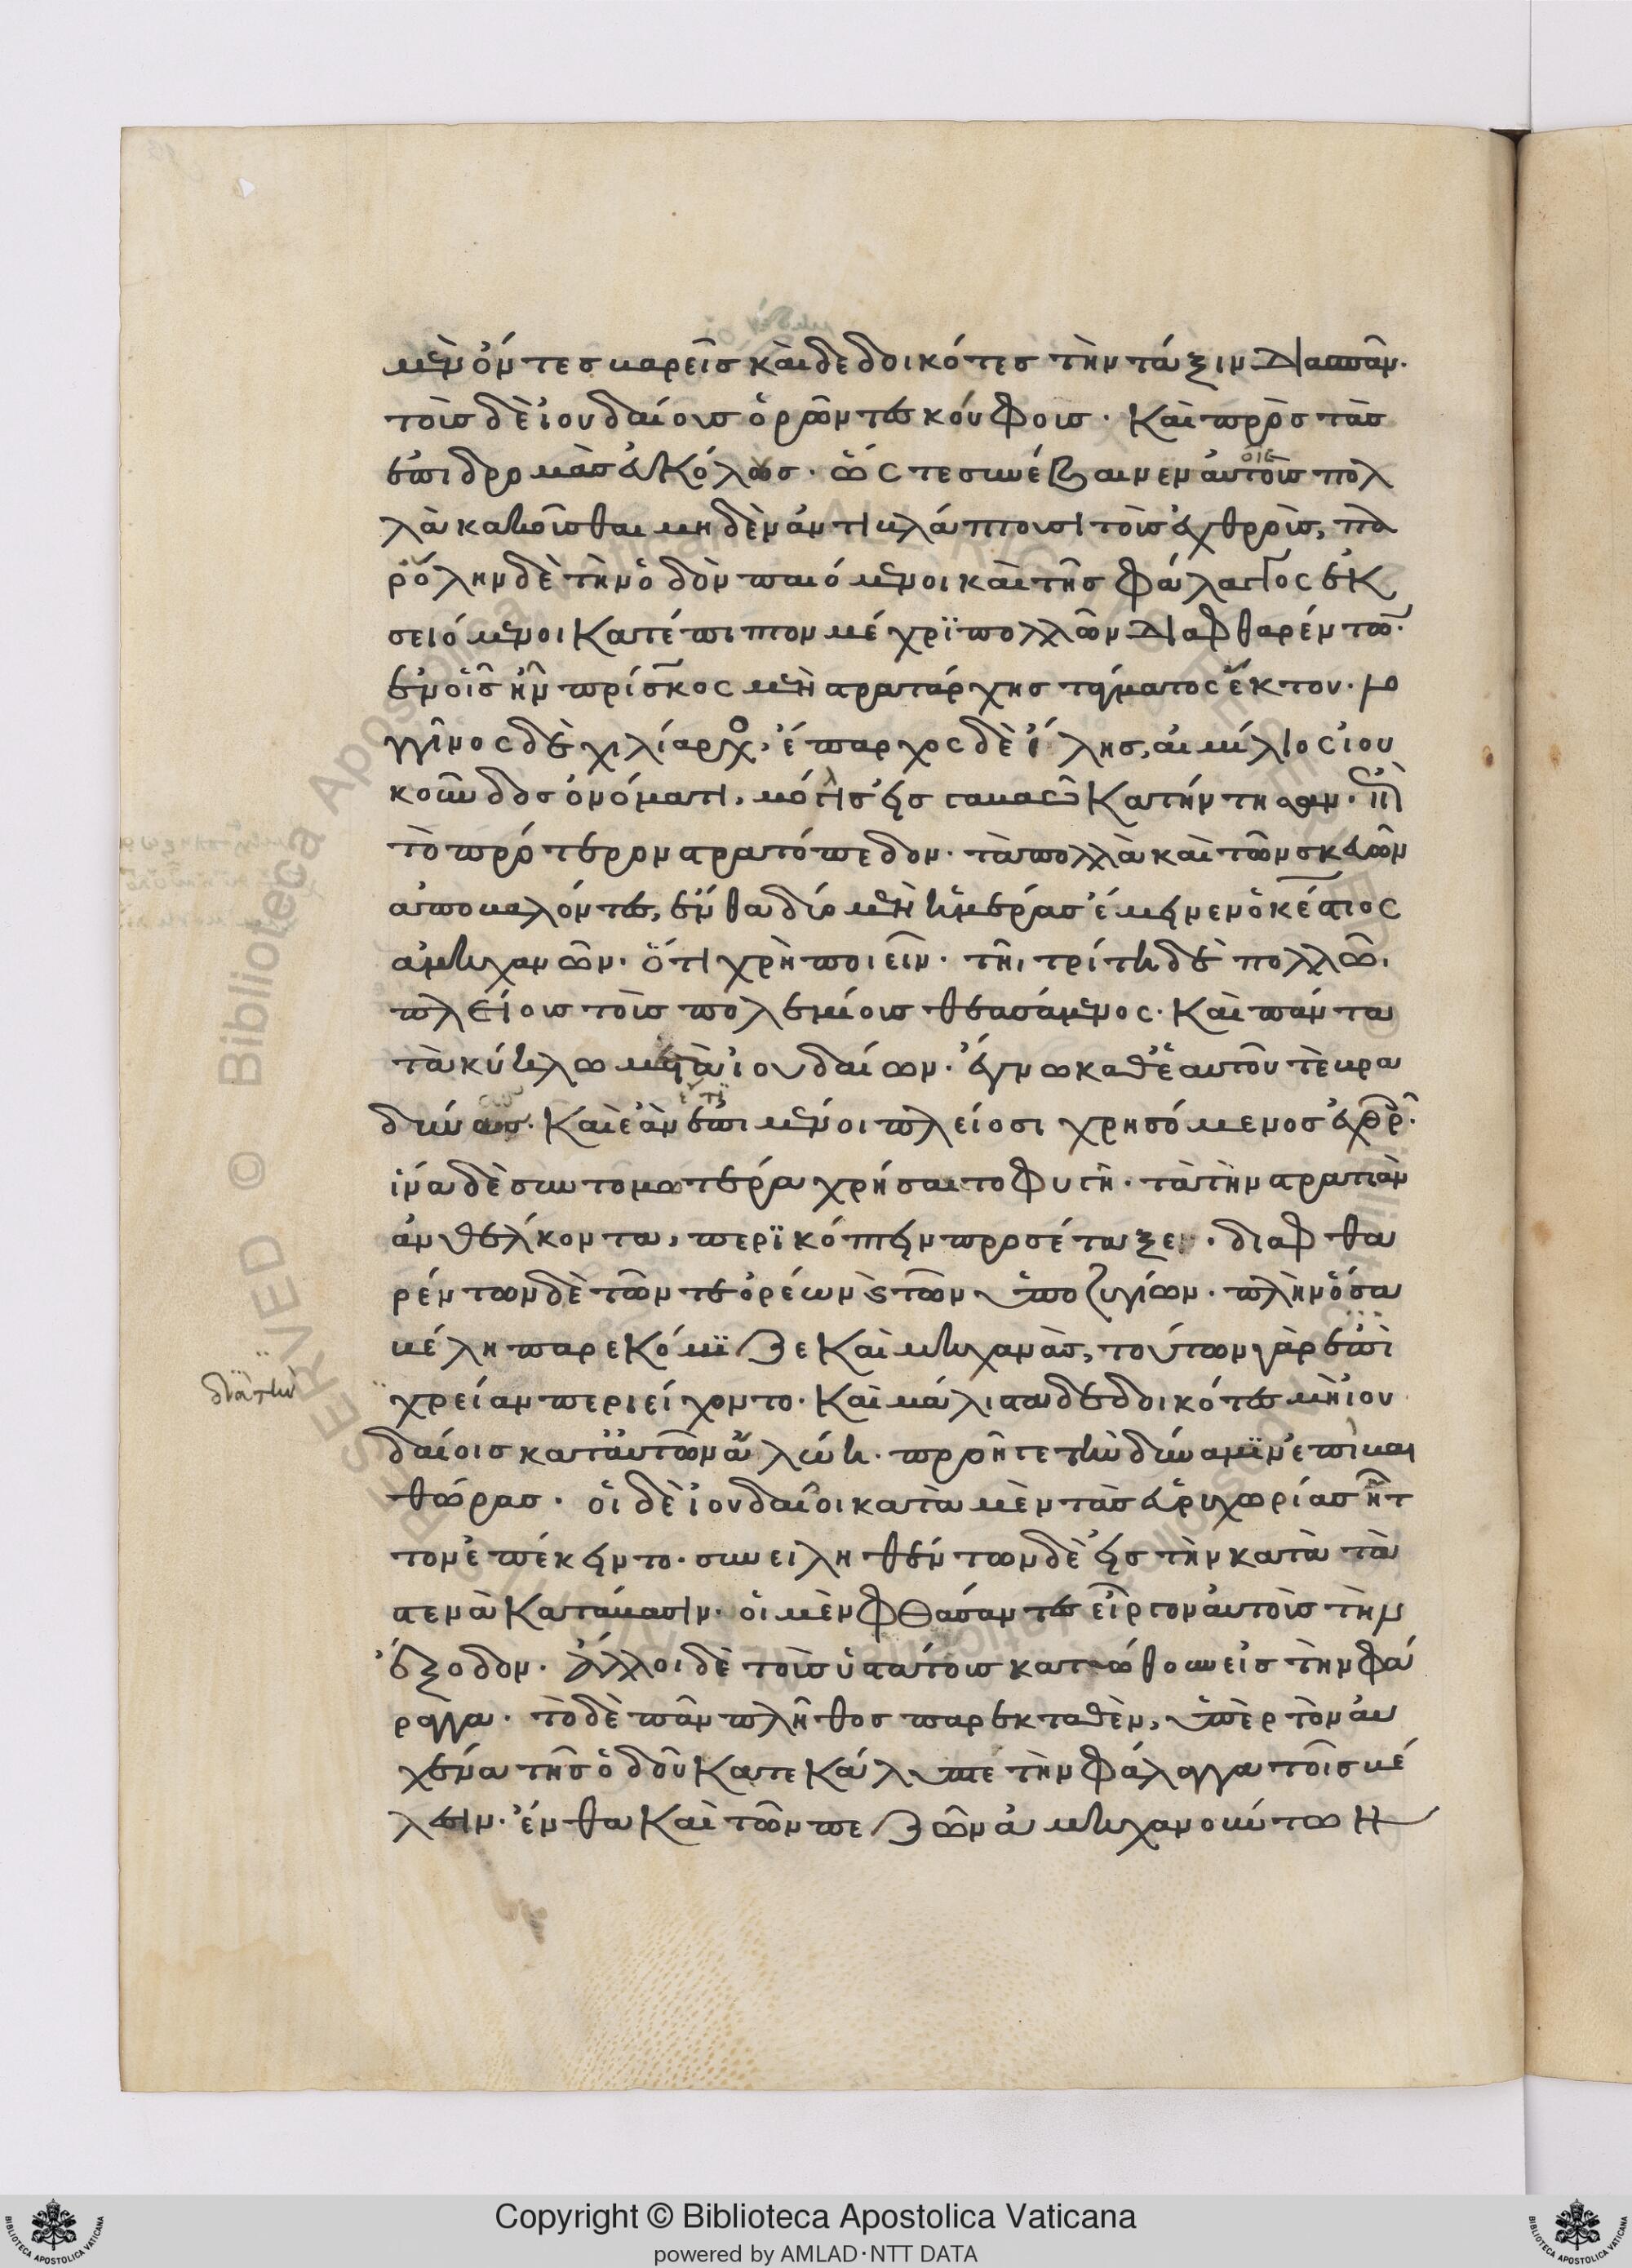 μὲν ὄντες βαρεῖς καὶ δεδοικότες τὴν τάξιν διασπᾶν.
τοῖς δὲ ἰουδαίοις ὁρῶντες κούφοις. καὶ πρὸς τὰς
ἐπιδρομὰς εὐκόλως. ὥς τε συνέβαινεν αὐτοῖς πολ
λὰ κακοῦσθαι μηδὲν ἀντιβλάπτουσι τοῖς ἐχθροῖς, πα
ρόλην δὲ τὴν ὁδὸν παιόμενοι καὶ τῆς φάλαγγος ἐκ
σειόμενοι κατέπιπτον μέχρι πολλῶν διαφθαρέντων.
ἐν οἷς ἦν πρίσκος μὲν στρατάρχης τάγματος ἕκτου. λο
γγῖνος δὲ χιλίαρχος, ἔπαρχος δὲ ἴλης, αἰμίλιος ἰου
κοῦνδος ὀνόματι, μόλις εἰς γαβαὼ κατήντησαν. ἐπὶ
τὸ πρότερον στρατόπεδον. τὰ πολλὰ καὶ τῶν σκευῶν
ἀποβαλόντες, ἔνθα δύο μὲν ἡμέρας ἔμεινεν ὁ κέστιος
ἀμηχανῶν. ὅτι χρὴ ποιεῖν. τῆι τρίτη δὲ πολλῶι
πλείους τοὺς πολεμίους θεασάμενος. καὶ πάντα
τὰ κύκλω μεστὰ ἰουδαίων. ἔγνω καθ' ἑαυτοῦ τε βρα
δύνας. καὶ ἐὰν ἐπιμένοι πλείοσι χρησόμενος ἐχθροῖς.
ἵνα δὲ συντομωτέρα χρήσαιτο φυγῆ. τὰ τὴν στρατιὰν
ἀνθέλκοντα, περικόπτειν προσέταξεν. διαφθα
ρέντων δὲ τῶν τε ὀρέων καὶ τῶν ὑποζυγίων. πλὴν ὅσα
βέλη παρεκόμιζε καὶ μηχανὰς, τούτων γὰρ ἐπὶ
διὰ τὴν
χρείαν περιείχοντο. καὶ μάλιστα δεδοικότες μὴ ἰου
δαίοις κατ' αὐτῶν ἁλώη. προῆγε τὴν δύναμιν ἐπὶ βαι
θώρας. οἱ δὲ ἰουδαῖοι κατὰ μὲν τὰς εὐρυχωρίας ἧτ
τον ἐπέκειντο. συνειληθέντων δὲ εἰς τὴν κατὰ τὰ
στενὰ κατάβασιν. οἱ μὲν φθάσαντες εἶργον αὐτοὺς τῆς
ἐξόδου. ἄλλοι δὲ τοὺς ὑστάτους κατεώθουν εἰς τὴν φά
ραγγα. τὸ δὲ πᾶν πλῆθος παρεκταθὲν, ὑπὲρ τὸν αὐ
χένα τῆς ὁδοῦ κατεκάλυπτε τὴν φάλαγγα τοῖς βέ
λεσιν. ἔνθα καὶ τῶν πεζῶν ἀμηχανούντων
Copyright © Biblioteca Apostolica Vaticana
powered by AMLAD·NTT DATA